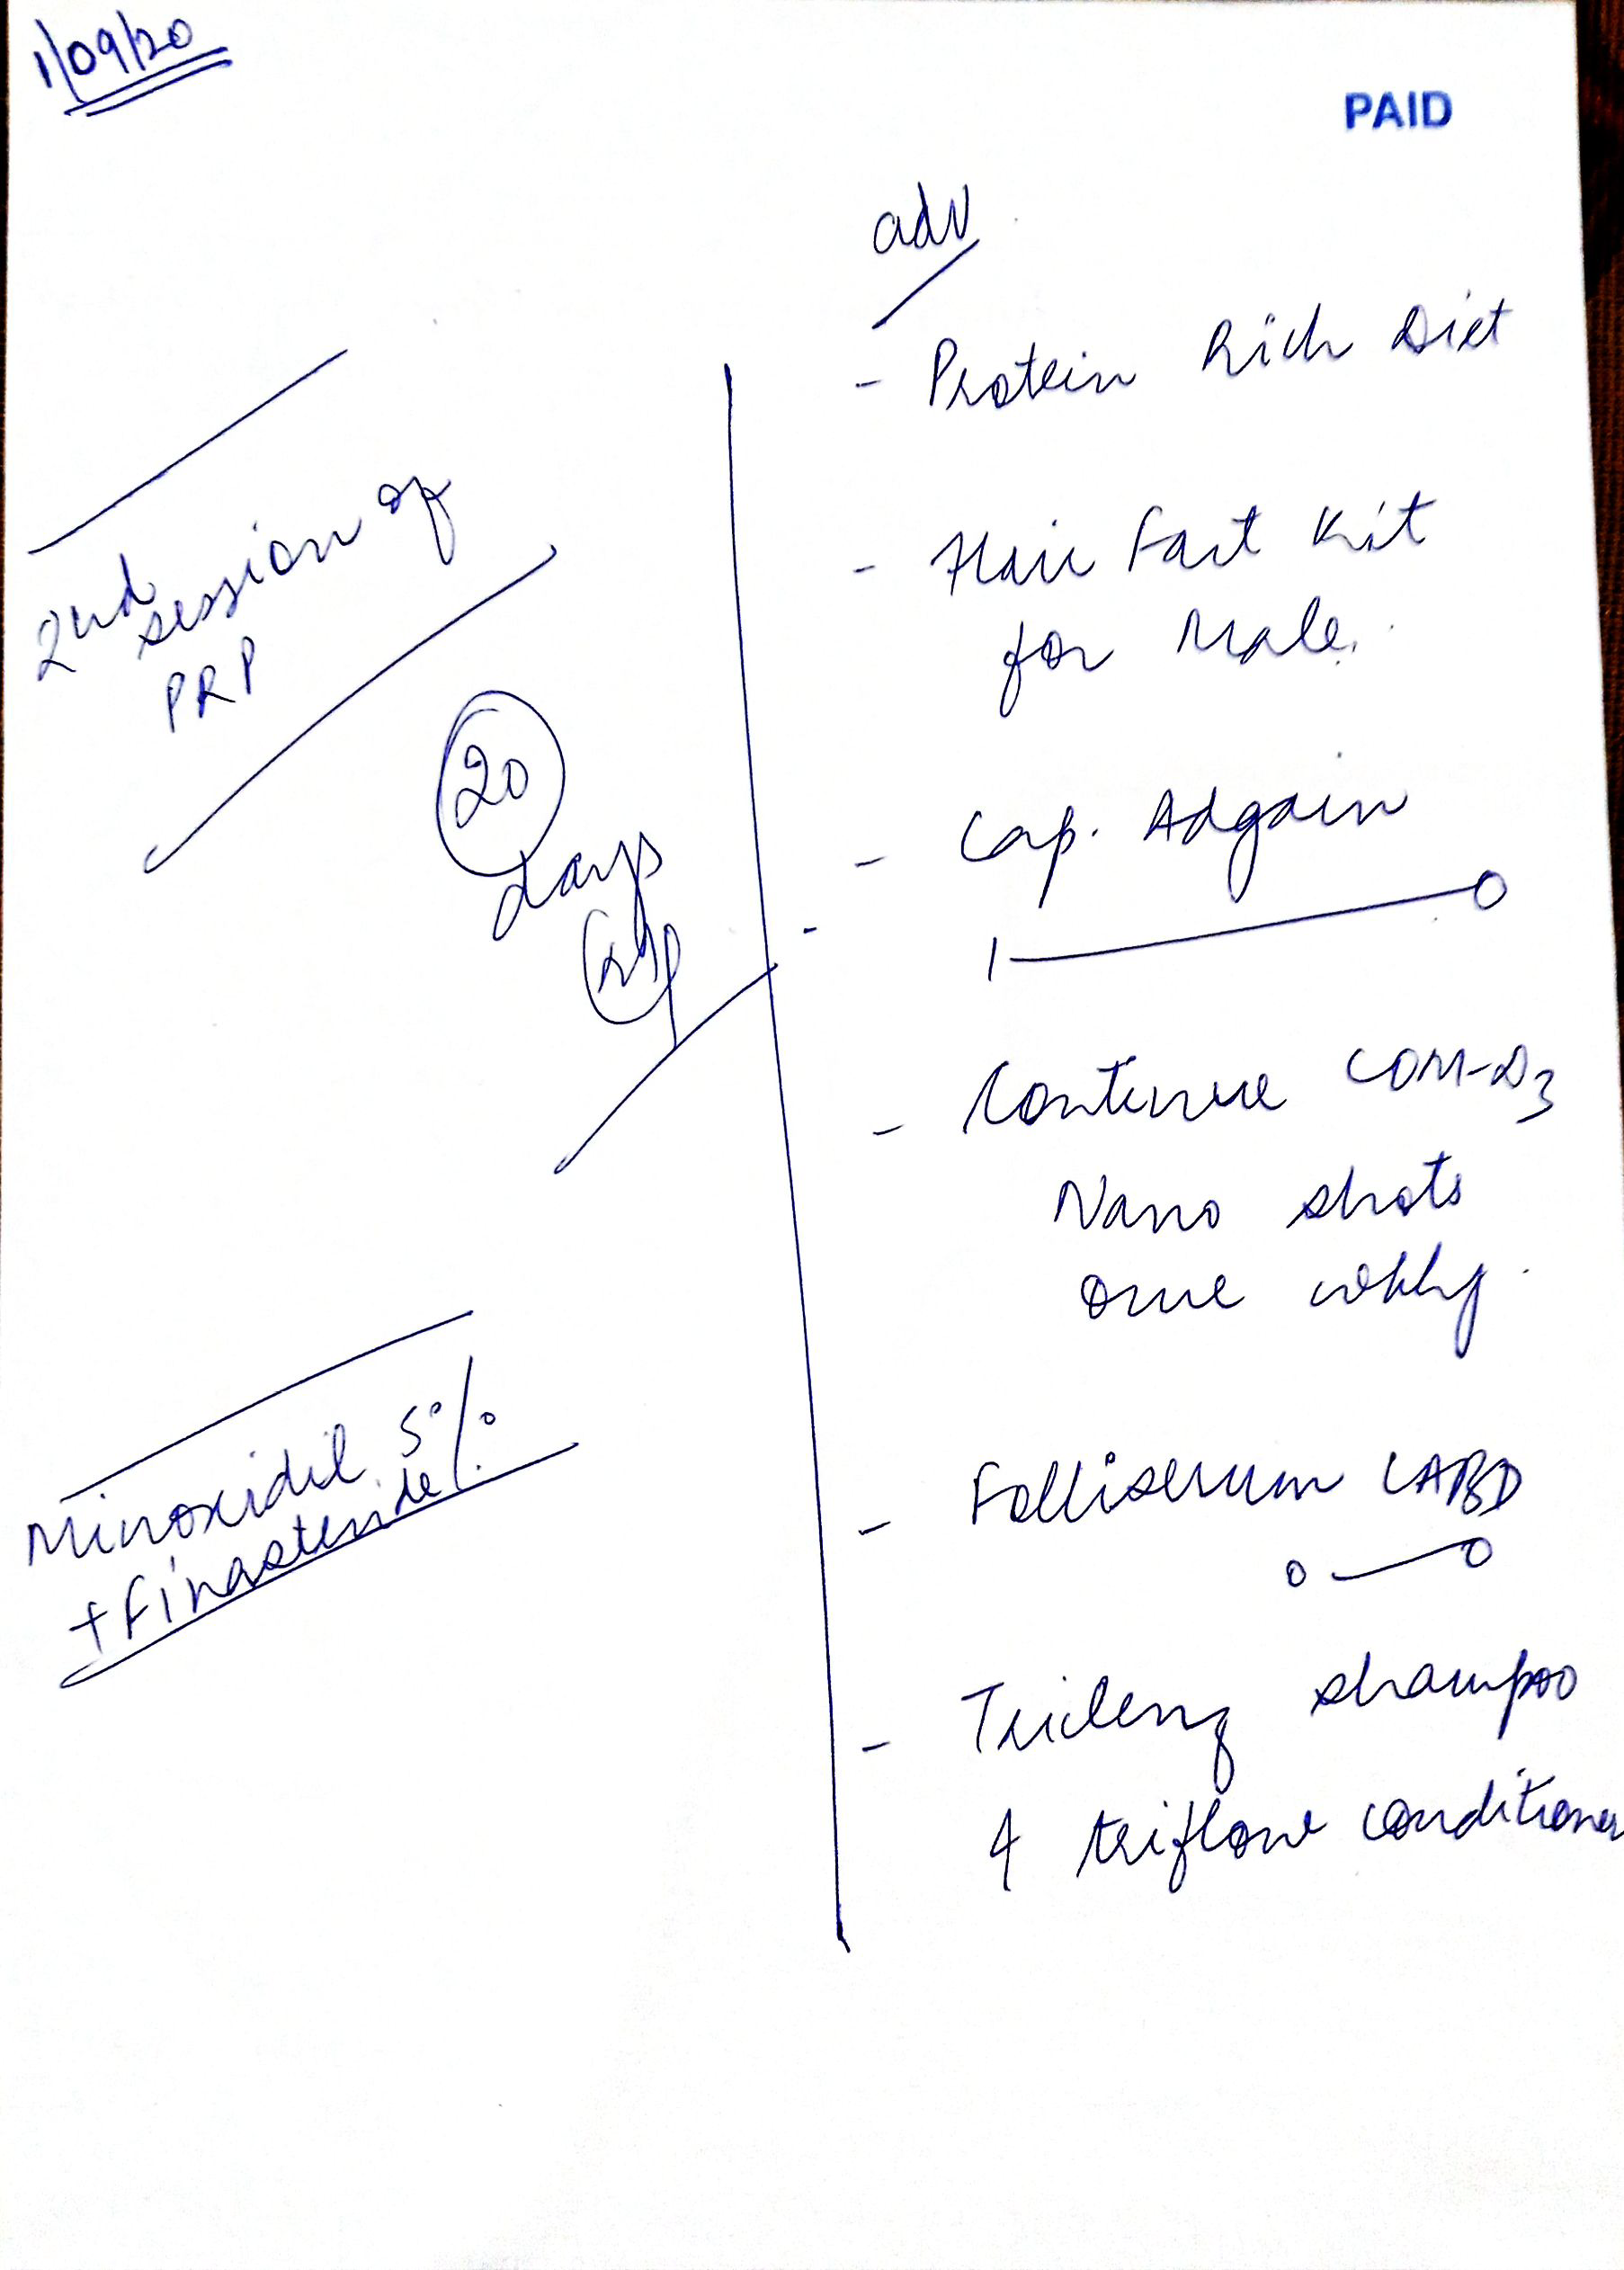 1/09/20
PAID
adv
2nd
session of
PRP
20
days
Minoxidil 5%
+ Finasteride
- Protein Rich Diet
- Hair Fact Kit
for Male.
- Cap. Adgain
1 — 0
- Continue COM-D3
Nano shots
once wkly.
- Folliserum
0 — 0
- shampoo
& triflow conditioner